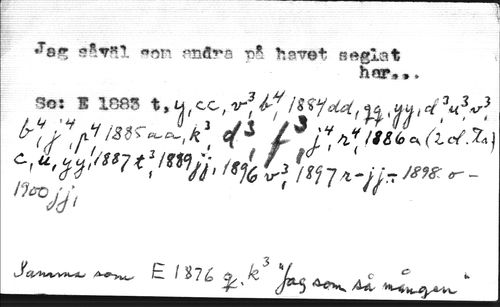 Jag såväl som andra på havet seglat
har...
Se: E 1883 t, y, cc, v³, b⁴, 1884 dd, qq, yy, d³, u³, v³,
b⁴, j⁴, p⁴, 1885 aa, k³, d³, f³, j⁴, r⁴, 1886 a (2 d. Ka)
c, u, yy, 1887 t³, 1889 jj, 1896 v³, 1897 r-jj-- 1898 o -
1900 jj,
Samma som E 1876 q. k³ "Jag som så mången"